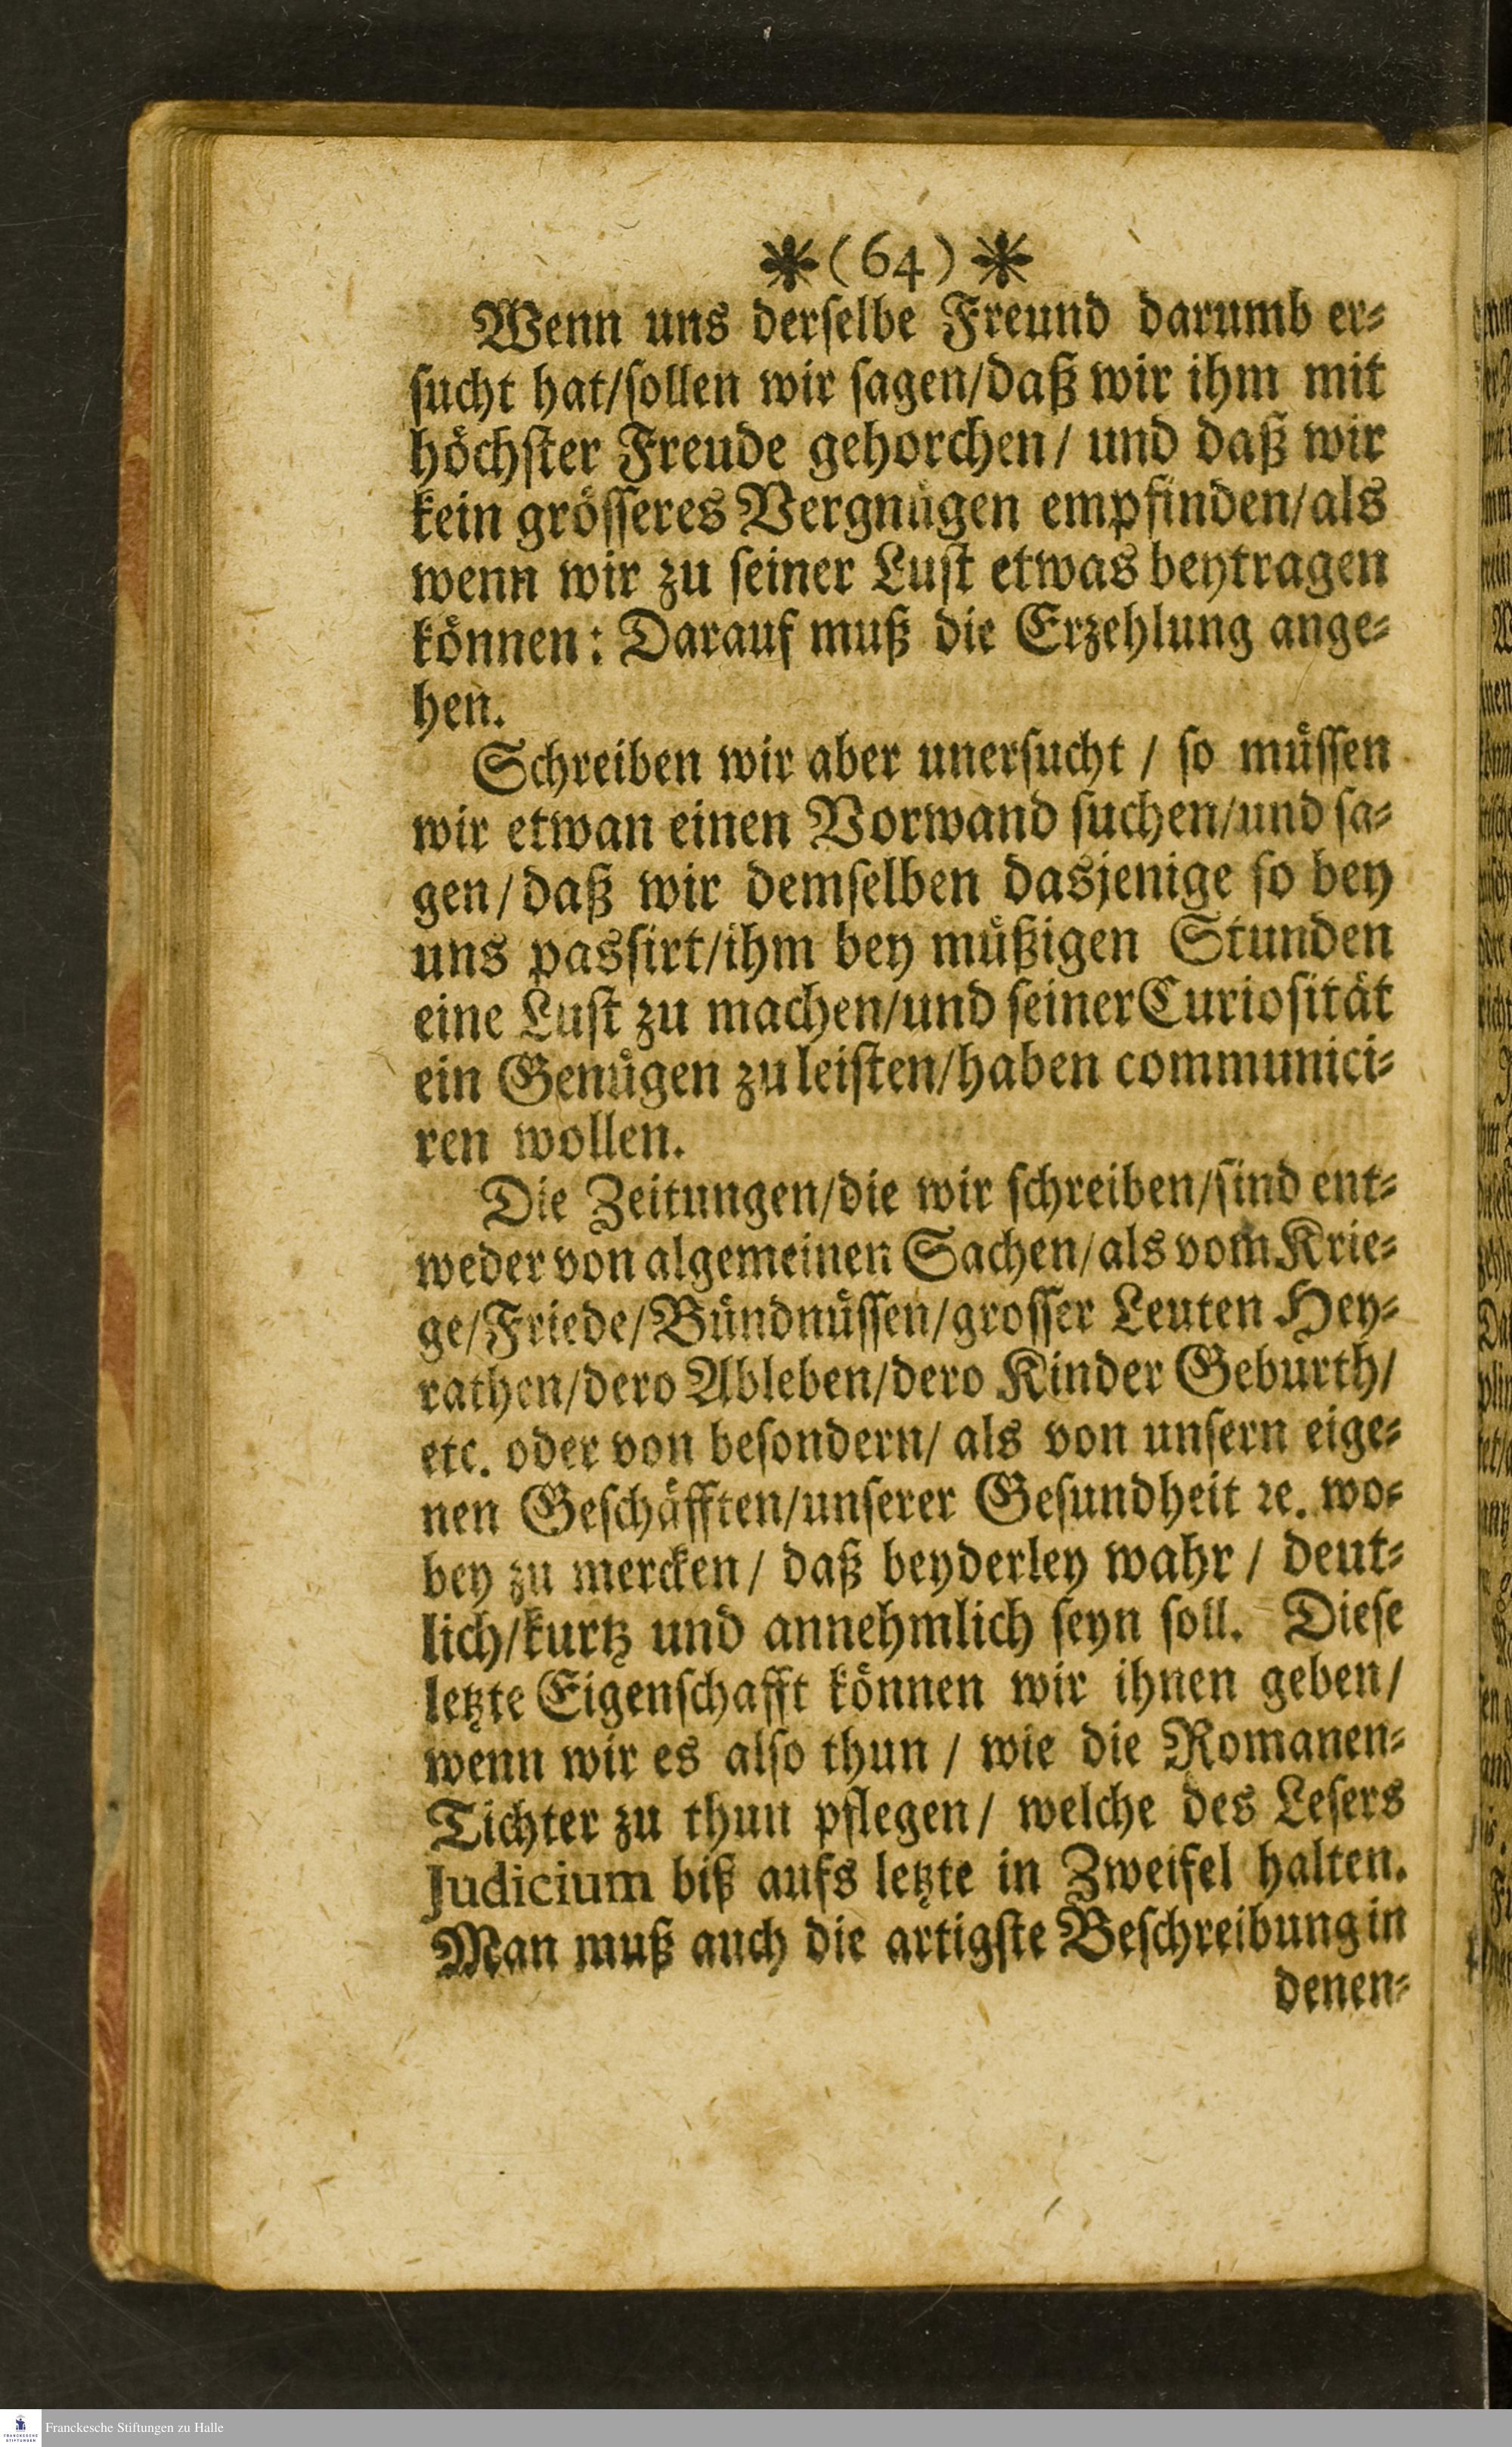 *(64)*
Wenn uns derſelbe Freund darumb er⸗
ſucht hat/ſollen wir ſagen/daß wir ihm mit
höchſter Freude gehorchen/ und daß wir
kein gröſſeres Vergnügen empfinden/als
wenn wir zu ſeiner Luſt etwas beytragen
können: Darauf muß die Erzehlung ange⸗
hen.
Schreiben wir aber unerſucht / ſo müſſen
wir etwan einen Vorwand ſuchen/und ſa⸗
gen/daß wir demſelben dasjenige ſo bey
uns pasſirt/ihm bey müßigen Stunden
eine Luſt zu machen/und ſeiner Curioſität
ein Genügen zu leiſten/haben communici⸗
ren wollen.
Die Zeitungen/die wir ſchreiben/ſind ent⸗
weder von algemeinen Sachen/als vom Krie⸗
ge/Friede/Bündnüſſen/groſſer Leuten Hey⸗
rathen/dero Ableben/dero Kinder Geburth/
etc. oder von beſondern/ als von unſern eige⸗
nen Geſchäfften/unſerer Geſundheit ꝛe. wo⸗
bey zu mercken/ daß beyderley wahr / deut⸗
lich/kurtz und annehmlich ſeyn ſoll. Dieſe
letzte Eigenſchafft können wir ihnen geben/
wenn wir es alſo thun / wie die Romanen⸗
Tichter zu thun pflegen/ welche des Leſers
Judicium biß aufs letzte in Zweifel halten.
Man muß auch die artigſte Beſchreibung in
denen⸗
Franckesche Stiftungen zu Halle